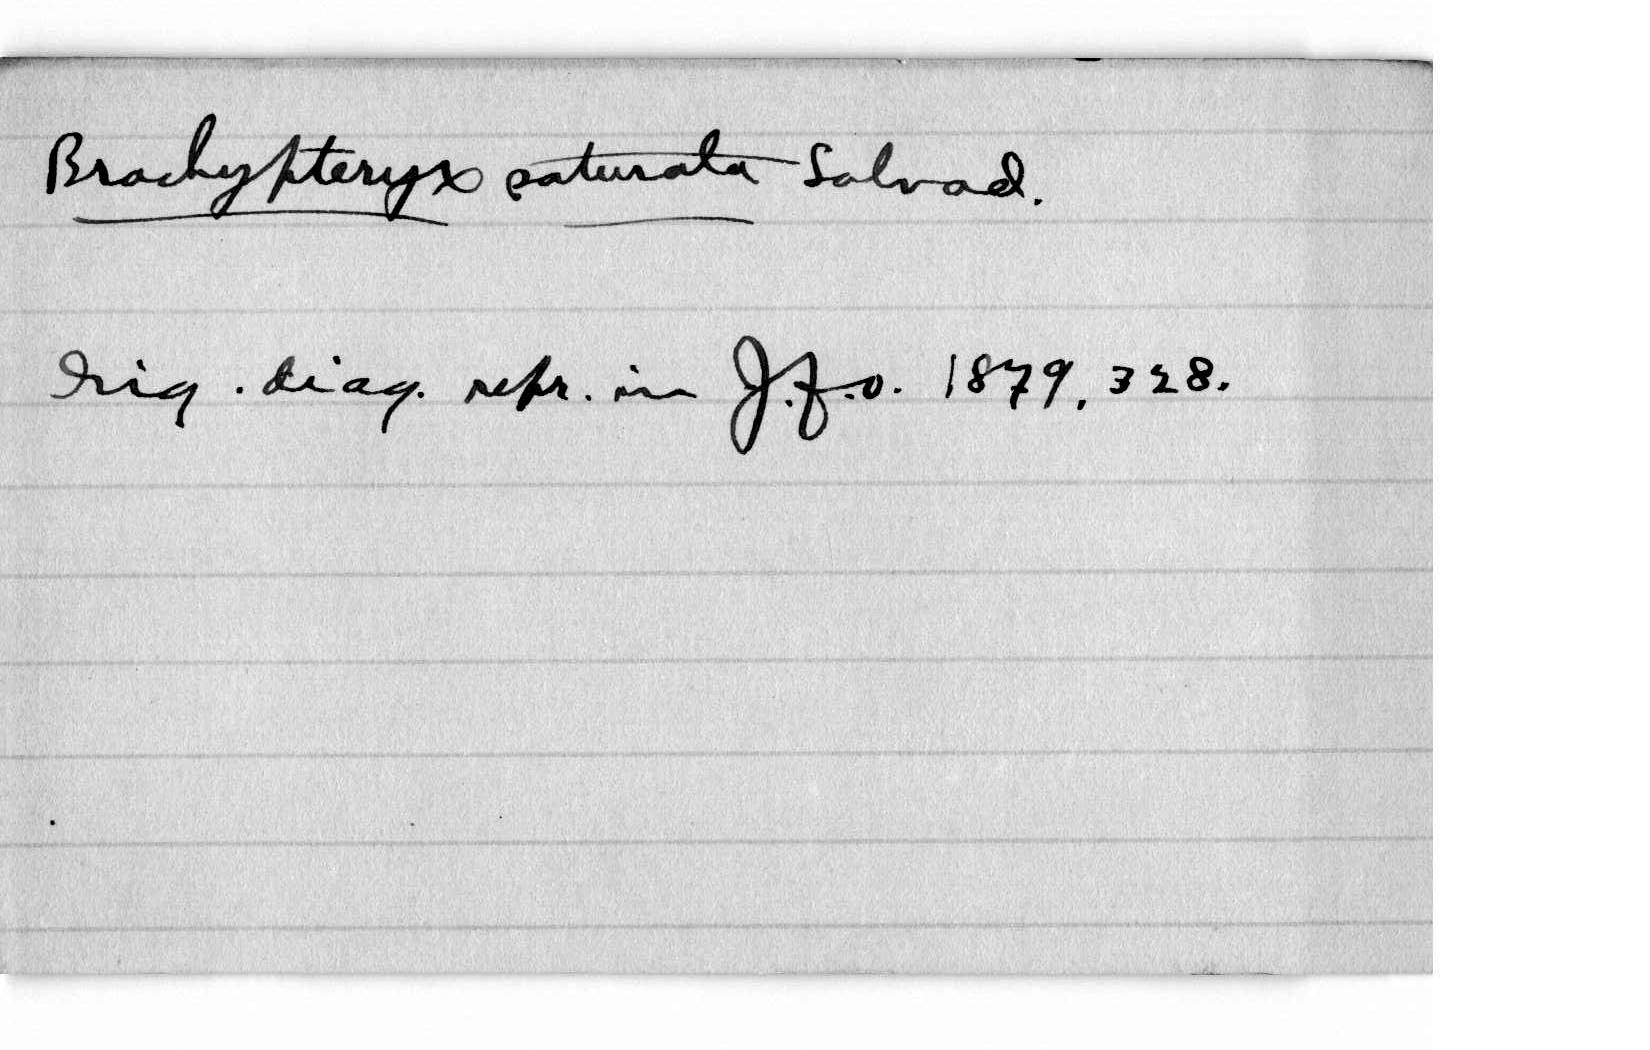 Brachypteryx saturata Salvad.
Orig. diag. repr. in J.f.O. 1879, 328.